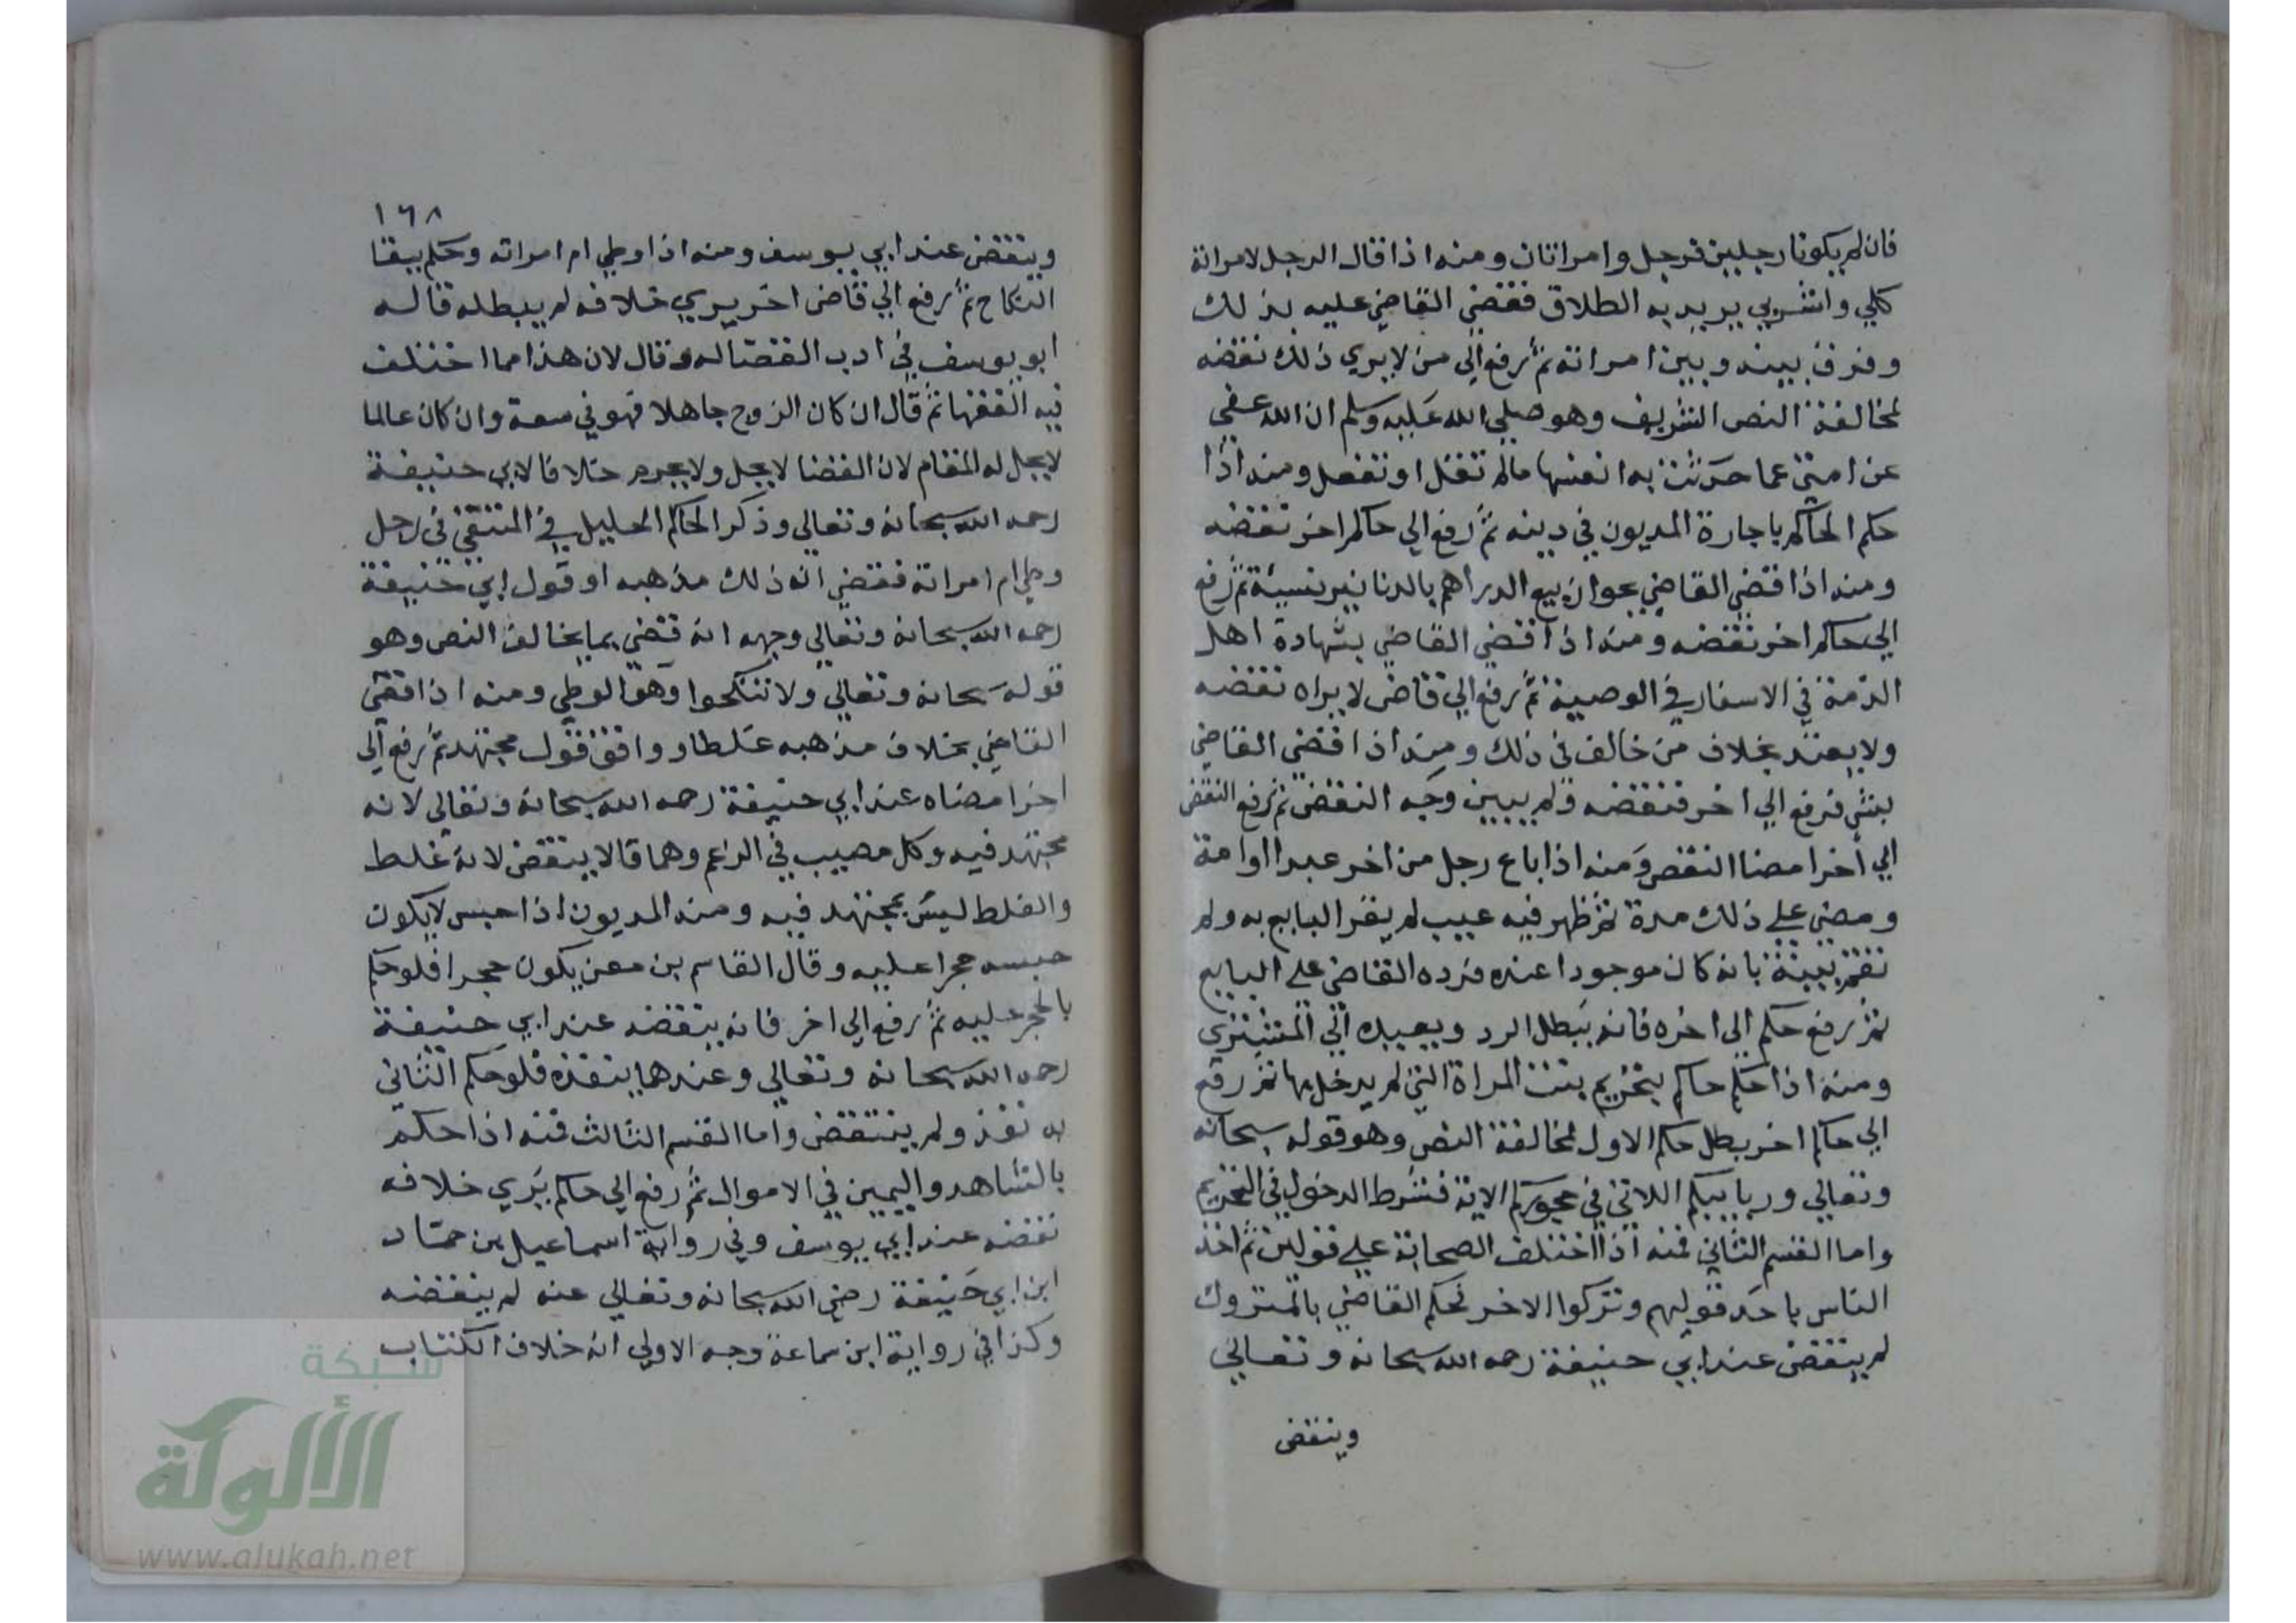 فان لم يكونا رجلين فرجل وامراتان ومنه اذا قال الرجل لامراته
كلي واشربي يريد به الطلاق فقضي القاضي عليه بذلك
وفرق بينه وبين امراته ثم رفع الي من لا يري ذلك نقضه
لمخالفة النص الشريف وهو صلي الله عليه وسلم ان الله عفي
عن امتي عما حدثت به انفسها مالم تقل او تفعل ومنه اذا
حكم الحاكم باجارة المديون في دينه ثم رفع الي حاكم اخر نقضه
ومنه اذا قضي القاضي بجواز بيع الدراهم بالدنانير نسيئة ثم رفع
الي حاكم اخر نقضه ومنه اذا قضي القاضي بشهادة اهل
الذمة في الاسفار في الوصية ثم رفع الي قاض لا يراه نقضه
ولا يعتد بخلاف من خالف في ذلك ومنه اذا قضي القاضي
بشي فرفع الي اخر فنقضه ولم يبين وجه النقض ثم رفع النقض
الي اخر امضا النقض ومنه اذا باع رجل من اخر عبدا او امة
ومضي علي ذلك مدة ثم ظهر فيه عيب لم يقر البايع به ولم
تقم بينة بانه كان موجودا عنده فرده القاضي علي البايع
ثم رفع حكم الي اخره فانه يبطل الرد ويعيده الي المشتري
ومنه اذا حكم حاكم بتحريم بنت المراة التي لم يدخل بها ثم رفع
الي حاكم اخر بطل حكم الاول لمخالفة النص وهو قوله سبحانه
وتعالي وربايبكم اللاتي في حجوركم الاية فشرط الدخول في التحريم
واما القسم الثاني فمنه اذا اختلف الصحابة علي قولين ثم اخذ
الناس باحد قوليهم وتركوا الاخر فحكم القاضي بالمتروك
لم ينقض عند ابي حنيفة رحمه الله سبحانه وتعالي
وينقض
١٦٨
وينقض عند ابي يوسف ومنه اذا وطي ام امراته وحكم ببقا
النكاح ثم رفع الي قاض اخر يري خلافه لم يبطله قاله
ابو يوسف في ادب القضا له وقال لان هذا مما اختلف
فيه الفقها ثم قال ان كان الزوج جاهلا فهو في سعة وان كان عالما
لا يحل له المقام لان القضا لا يحل ولا يحرم خلافا لابي حنيفة
رحمه الله سبحانه وتعالي وذكر الحاكم الجليل في المنتقي في رجل
وطي ام امراته فقضي ان ذلك مذهبه او قول ابي حنيفة
رحمه الله سبحانه وتعالي وجهه انه قضي بما يخالف النص وهو
قوله سبحانه وتعالي ولا تنكحوا وهو الوطي ومنه اذا قضي
القاضي بخلاف مذهبه غلطا ووافق قول مجتهد ثم رفع الي
اخر امضاه عند ابي حنيفة رحمه الله سبحانه وتعالي لانه
مجتهد فيه وكل مصيب في الزعم وهما قالا ينقض لانه غلط
والغلط ليس بمجتهد فيه ومنه المديون اذا حبس لا يكون
حبسه حجرا عليه وقال القاسم بن معن يكون حجرا فلو حكم
بالحجر عليه ثم رفع الي اخر فانه ينقضه عند ابي حنيفة
رحمه الله سبحانه وتعالي وعندهما ينفذه فلو حكم الثاني
به نفذ ولم ينتقض واما القسم الثالث فمنه اذا حكم
بالشاهد واليمين في الاموال ثم رفع الي حاكم يري خلافه
نقضه عند ابي يوسف وفي رواية اسماعيل بن حماد
ابن ابي حنيفة رضي الله سبحانه وتعالي عنه لم ينقضه
وكذا في رواية ابن سماعة وجه الاولي انه خلاف الكتاب
شبكة
الألوكة
www.alukah.net